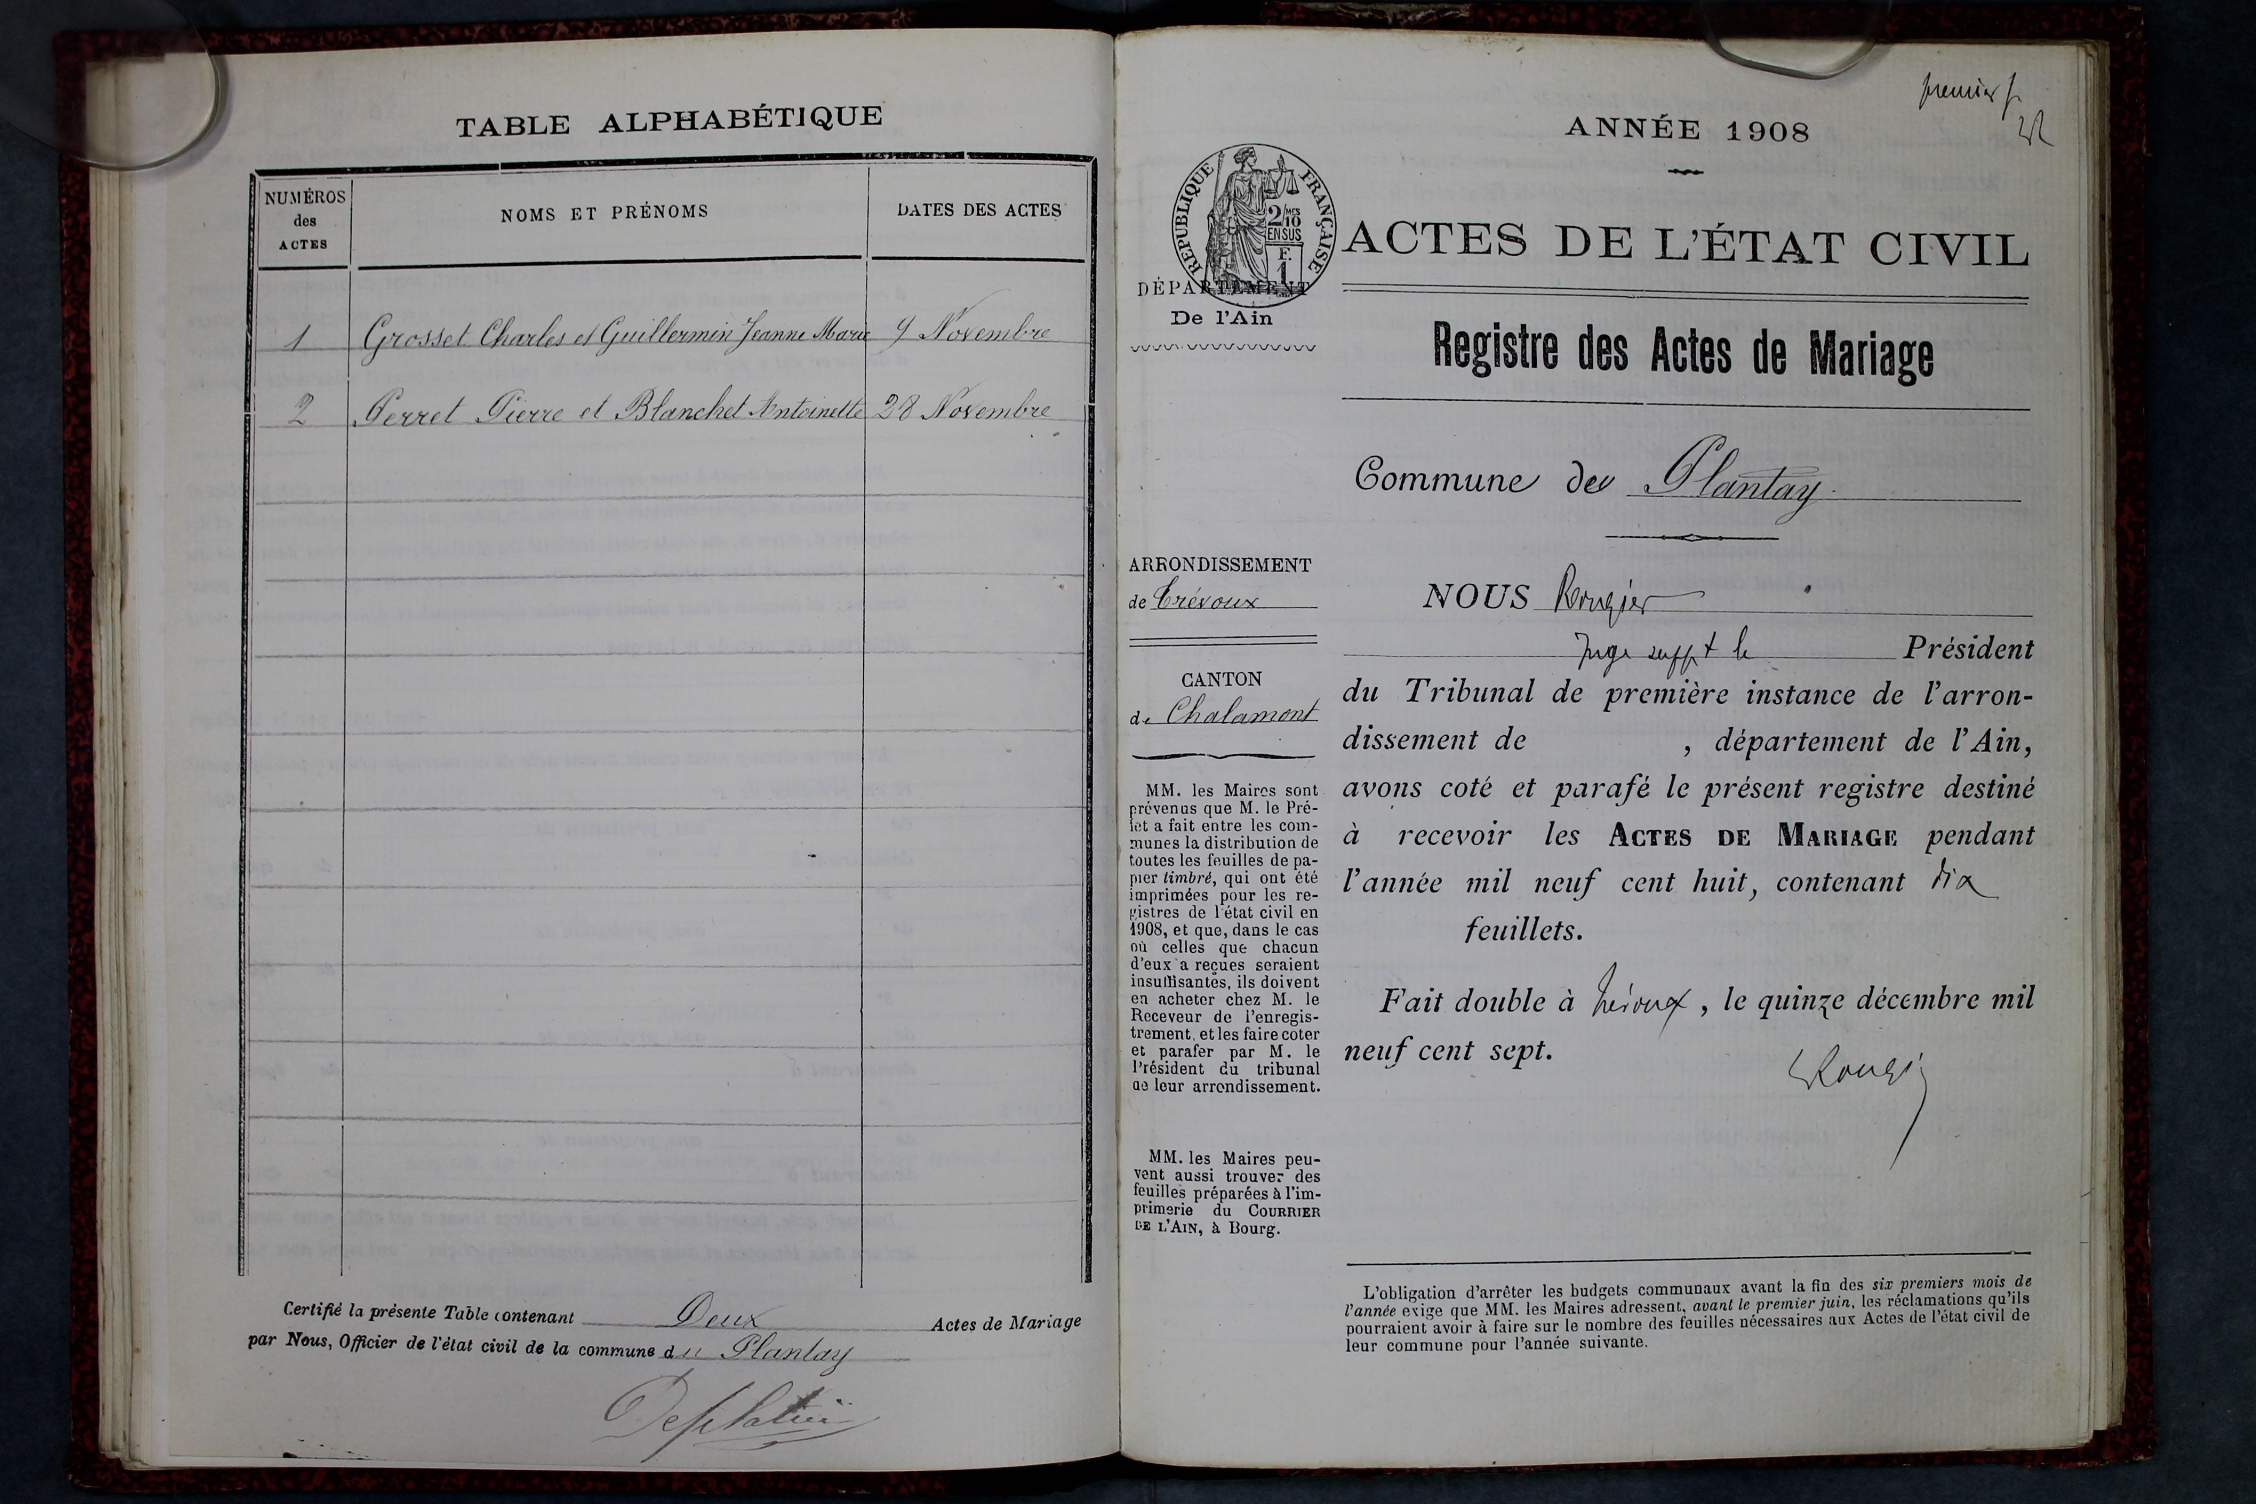 TABLE ALPHABÉTIQUE
NUMÉROS
des
ACTES
NOMS ET PRÉNOMS
DATES DES ACTES
1 Grosset Charles et Guillermin Jeanne Marie 9 Novembre
2 Perret Pierre et Blanchet Antoinette 28 Novembre
Certifié la présente Table contenant Deux Actes de Mariage
par Nous, Officier de l'état civil de la commune du Plantay
premier f.
ANNÉE 1908
RÉPUBLIQUE FRANÇAISE
2/10 MES
EN SUS
F.
1
ACTES DE L'ÉTAT CIVIL
DÉPARTEMENT
De l'Ain
Registre des Actes de Mariage
Commune de Plantay
ARRONDISSEMENT
de Trévoux
CANTON
de Chalamont
MM. les Maires sont
prévenus que M. le Pré-
fet a fait entre les com-
munes la distribution de
toutes les feuilles de pa-
pier timbré, qui ont été
imprimées pour les re-
gistres de l'état civil en
1908, et que, dans le cas
où celles que chacun
d'eux a reçues seraient
insuffisantes, ils doivent
en acheter chez M. le
Receveur de l'enregis-
trement, et les faire coter
et parafer par M. le
Président du tribunal
de leur arrondissement.
MM. les Maires peu-
vent aussi trouver des
feuilles préparées à l'im-
primerie du COURRIER
DE L'AIN, à Bourg.
NOUS Rougier
Juge suppt le Président
du Tribunal de première instance de l'arron-
dissement de , département de l'Ain,
avons coté et parafé le présent registre destiné
à recevoir les ACTES DE MARIAGE pendant
l'année mil neuf cent huit, contenant dix
feuillets.
Fait double à Trévoux, le quinze décembre mil
neuf cent sept.
L'obligation d'arrêter les budgets communaux avant la fin des six premiers mois de
l'année exige que MM. les Maires adressent, avant le premier juin, les réclamations qu'ils
pourraient avoir à faire sur le nombre des feuilles nécessaires aux Actes de l'état civil de
leur commune pour l'année suivante.